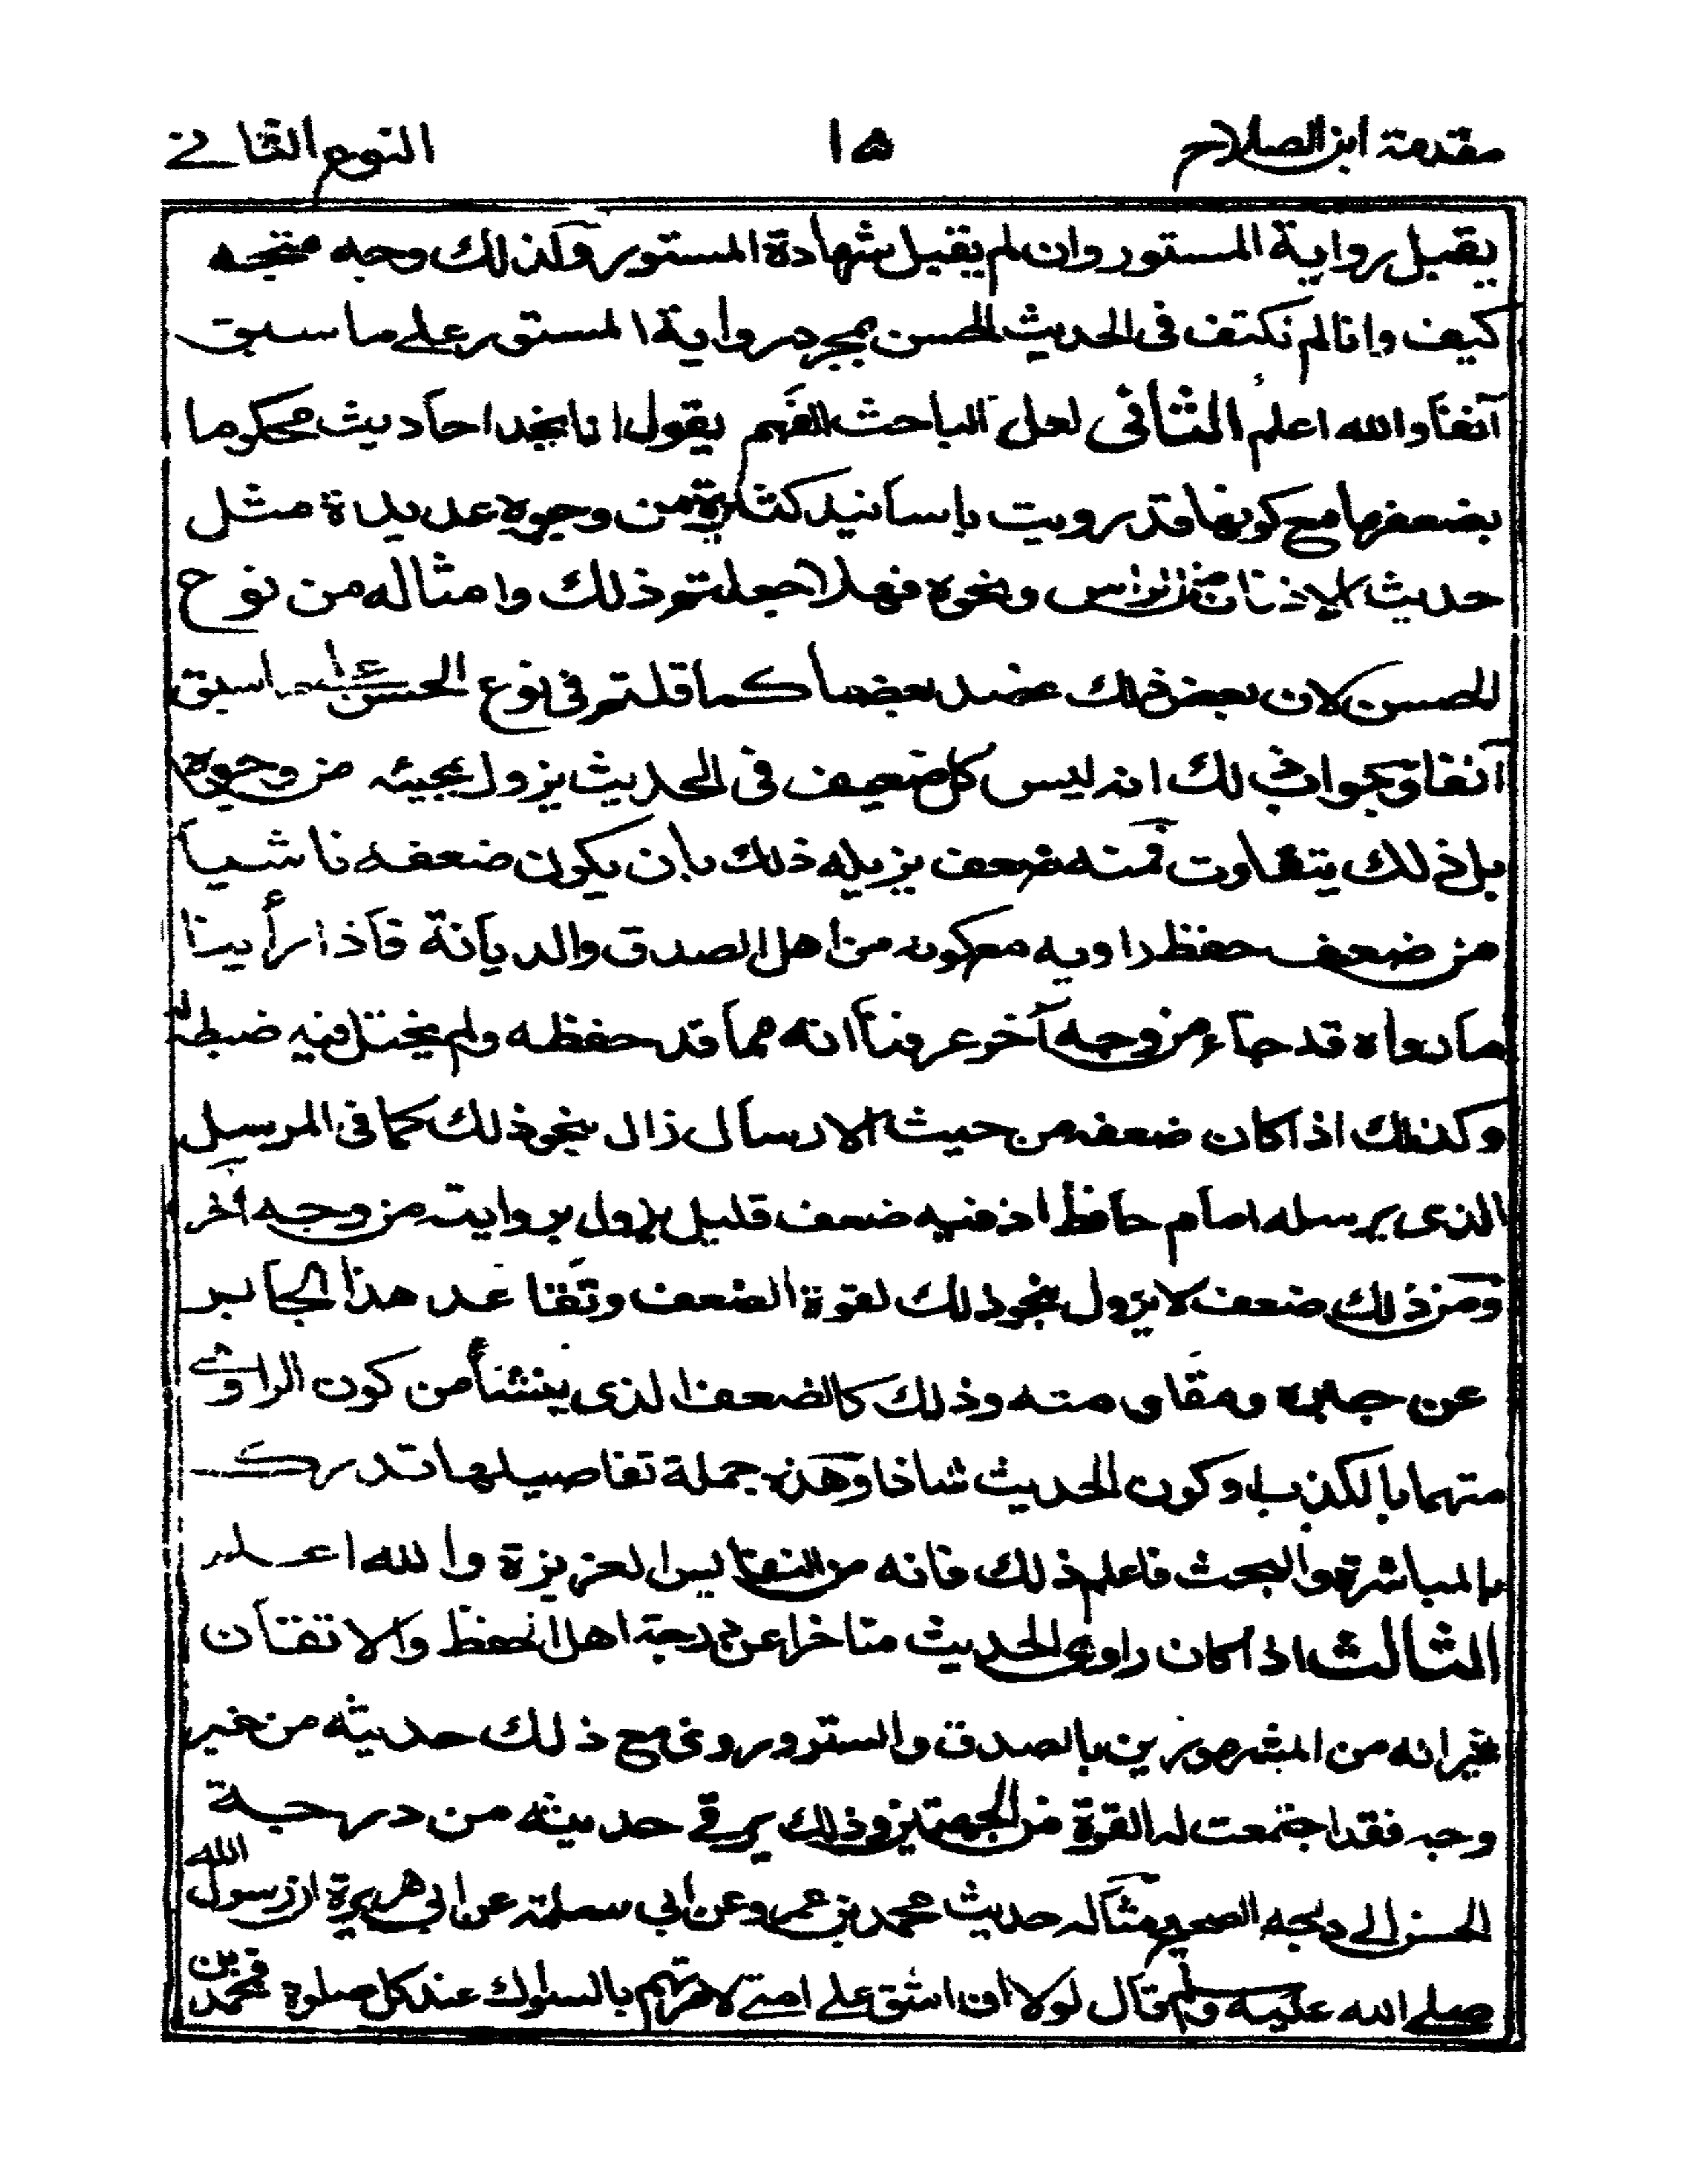 مقدمة ابن الصلاح ١٥ النوع الثاني
يقبل رواية المستور وان لم يقبل شهادة المستور ولذلك وجه متجه
كيف وانا لم نكتف فى الحديث الحسن بمجرد رواية المستور على ما سبق
آنفا والله اعلم الثانى لعل الباحث الفهم يقول انا نجد احاديث محكوما
بضعفها مع كونها قد رويت باسانيد كثيرة من وجوه عديدة مثل
حديث الاذنان من الراس ونحوه فهلا جعلتم ذلك وامثاله من نوع
الحسن لان بعض ذلك عضد بعضا كما قلتم فى نوع الحسن على ما سبق
آنفا وجواب ذلك انه ليس كل ضعيف فى الحديث يزول بمجيئه من وجوه
بل ذلك يتفاوت فمنه ضعف يزيله ذلك بان يكون ضعفه ناشيا
من ضعف حفظ راويه مع كونه من اهل الصدق والديانة فاذا رأينا
ما رواه قد جاء من وجه آخر عرفنا انه مما قد حفظه ولم يختل فيه ضبطه
وكذلك اذا كان ضعفه من حيث الارسال زال بنحو ذلك كما فى المرسل
الذى يرسله امام حافظ اذ فيه ضعف قليل يزول بروايته من وجه آخر
ومن ذلك ضعف لا يزول بنحو ذلك لقوة الضعف وتقاعد هذا الجابر
عن جبره ومقاومته وذلك كالضعف الذى ينشأ من كون الراوي
متهما بالكذب او كون الحديث شاذا وهذه جملة تفاصيلها تدرك
بالمباشرة والبحث فاعلم ذلك فانه من النفايس العزيزة والله اعلم
الثالث اذا كان راوي الحديث متاخرا عن درجة اهل الحفظ والاتقان
غير انه من المشهورين بالصدق والستر وروي مع ذلك حديثه من غير
وجه فقد اجتمعت له القوة من الجهتين وذلك يرقي حديثه من درجة
الحسن الى درجه الصحيح مثاله حديث محمد بن عمرو عن ابي سلمة عن ابي هريرة ان رسول الله
صلى الله عليه وسلم قال لولا ان اشق على امتى لامرتهم بالسواك عند كل صلوة فمحمد بن